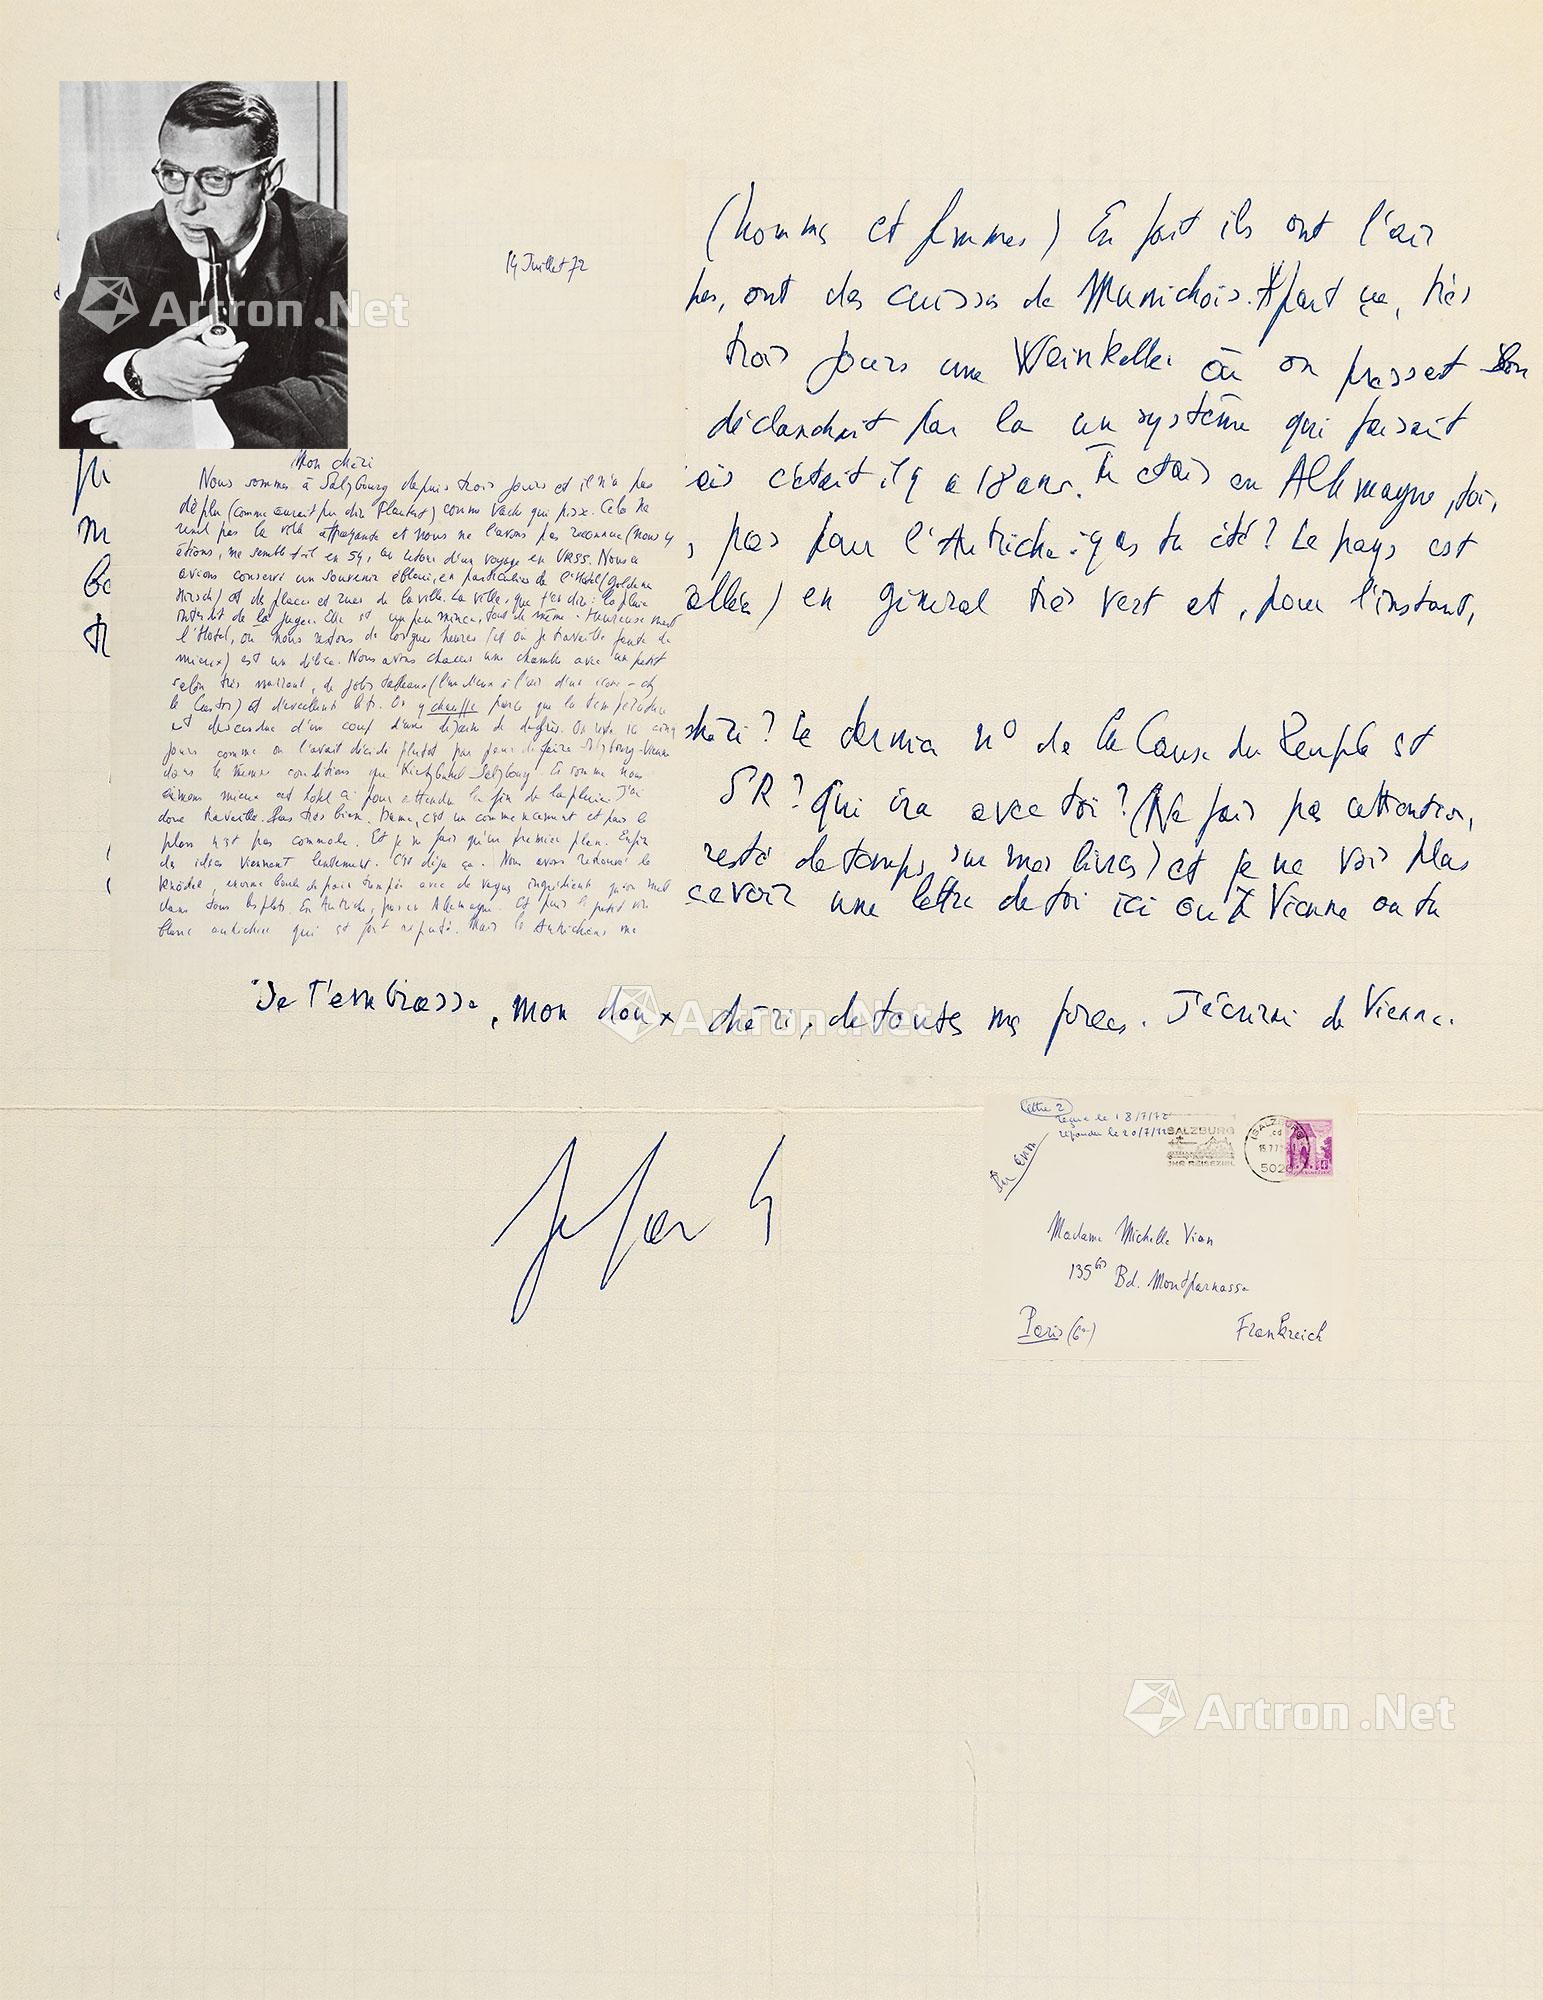 Artron.Net
14 Juillet 72
Mon chéri
Nous sommes à Salzbourg depuis trois jours et il n'a pas
déplu (comme aurait pu dire Flaubert) comme vache qui pisse. Cela ne
rend pas la ville attrayante et nous ne l'avons pas reconnue (nous y
étions, me semble-t-il en 54, au retour d'un voyage en URSS. Nous
avions conservé un souvenir ébloui, en particulier de l'Hôtel (Goldene
Hirsch) et des places et rues de la ville. La ville, que t'en dire: la pluie
interdit de la juger. Elle est un peu mince, tout de même. Heureusement
l'Hotel, où nous restons de longues heures (et où je travaille faute de
mieux) est un délice. Nous avons chacun une chambre avec un petit
salon très marrant, de jolis tableaux (l'un deux a l'air d'une icone - ch
le Castor) et d'excellents lits. On y chauffe parce que la température
est descendue d'un coup d'une dizaine de degrés. On reste ici cinq
jours comme on l'avait décidé plutot que pour faire Salzbourg-Vienne
dans les mêmes conditions que Kitzbuhel-Salzbourg. En somme nous
aimons mieux cet hotel ci pour attendre la fin de la pluie. J'ai
donc travaillé. Pas très bien. Dame, c'est un commencement et puis le
plan n'est pas commode. Et je ne fais qu'un premier plan. Enfin
des idées viennent lentement. C'est déjà ça. Nous avons retrouvé le
Knödel, enorme boule de pain trempée avec de vagues ingrédients qu'on met
dans tous les plats. En Autriche, pas en Allemagne. Et puis le petit vin
blanc autrichien qui est fort réputé. Mais les Autrichiens me
(hommes et femmes) En fait ils ont l'air
pes, ont des cuisses de Munichois. A part ça, très
trois jours une Weinkeller où on pressait son
déclanchait par la un système qui faisait
ais c'était il y a 18 ans. Tu étais en Allemagne, toi,
, pas pour l'Autriche. y as tu été? Le pays est
allée) en général très vert et, pour l'instant,
chéri? Le dernier n° de la Cause du Peuple est
SR? Qui ira avec toi? (Ne fais pas attention,
resté de temps sur mes livres) et je ne vois plus
cevoir une lettre de toi ici ou à Vienne ou tu
Je t'embrasse, mon doux chéri, de toutes mes forces. J'écrirai de Vienne.
Artron.Net
Lettre 2
reçue le 18/7/72
répondu le 20/7/72
SALZBURG
IHR REISEZIEL
SALZBURG
5020
Par avion
Madame Michelle Vian
135bis Bd. Montparnasse
Paris (6e) Frankreich
Artron.Net